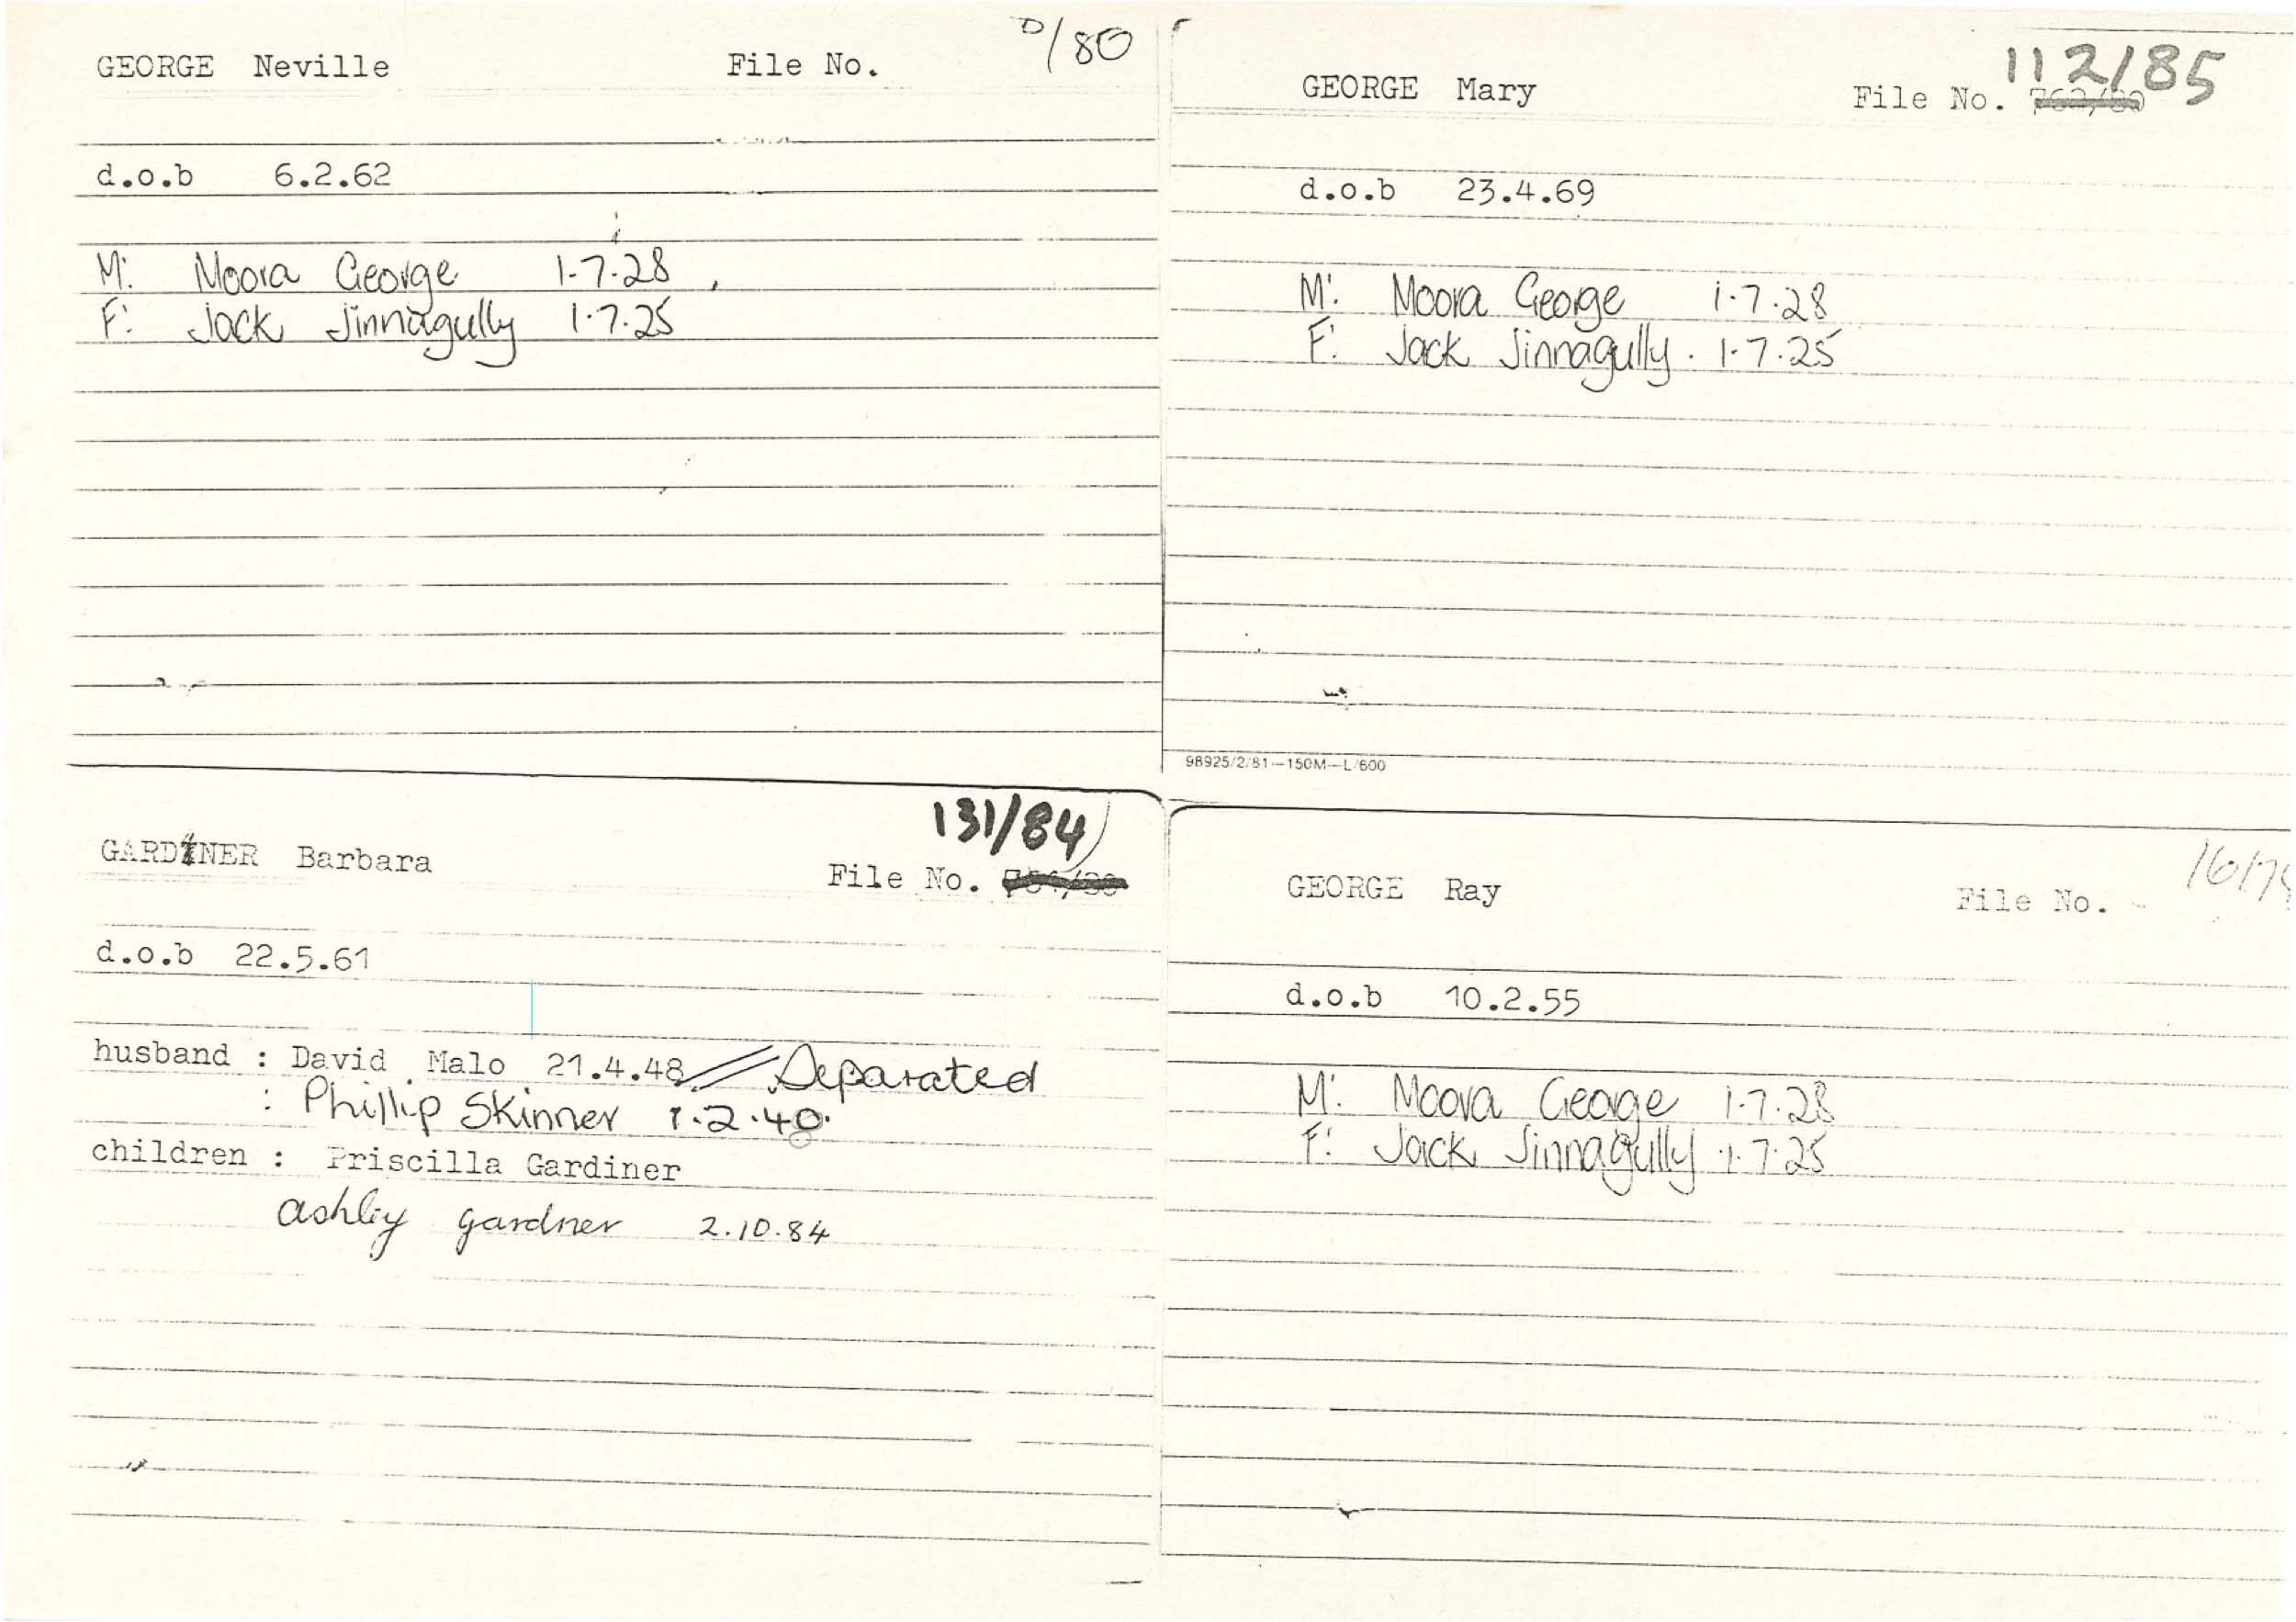 GEORGE Neville File No. 0/80
d.o.b 6.2.62
M: Moora George 1-7-28
F: Jack Jinnagully 1.7.25
GEORGE Mary File No. 112/85
d.o.b 23.4.69
M: Moora George 1.7.28
F: Jack Jinnagully. 1.7.25
98925/2/81—150M—L/600
131/84
GARDINER Barbara File No.
d.o.b 22.5.61
husband : David Malo 21.4.48 // Separated
: Phillip Skinner 1.2.40.
children : Priscilla Gardiner
ashley gardner 2.10.84
GEORGE Ray File No.
d.o.b 10.2.55
M: Moora George 1.7.28
F: Jack Jinnagully 1.7.25